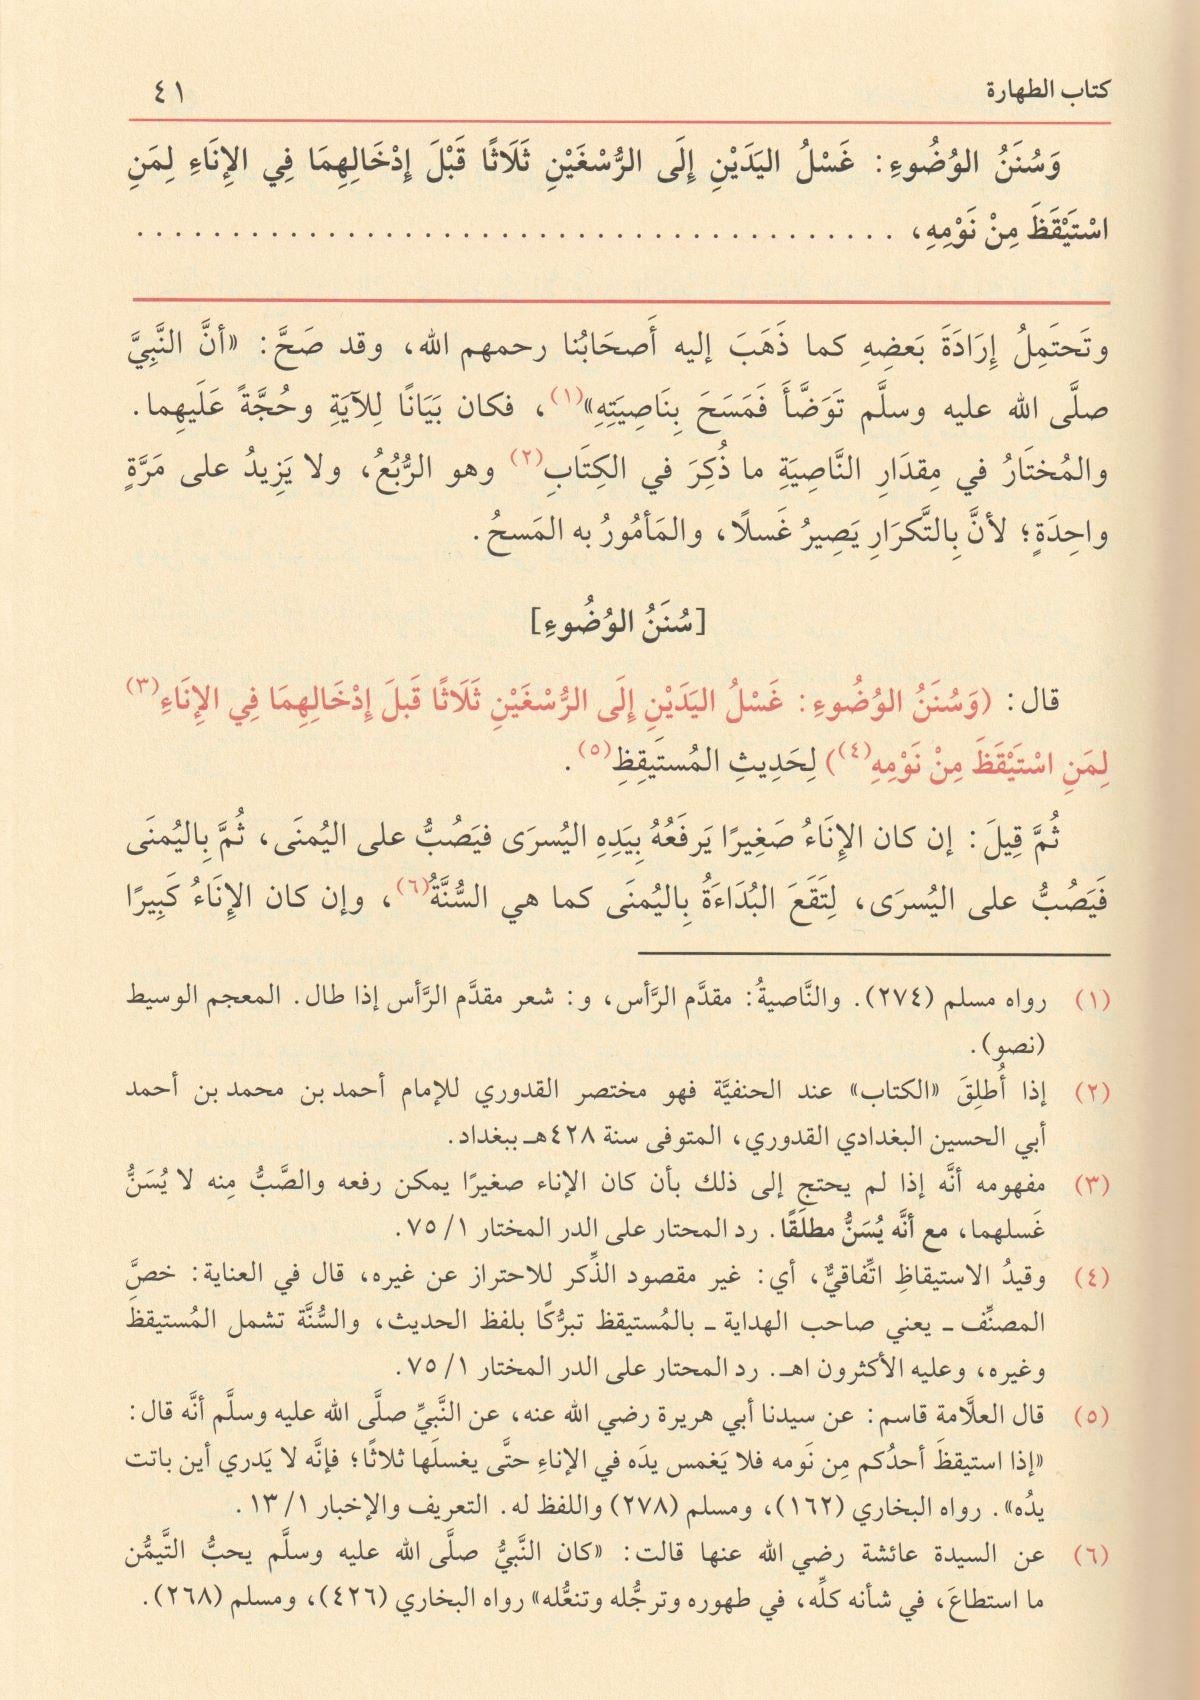 كتاب الطهارة ٤١
وَسُنَنُ الوُضُوءِ: غَسْلُ اليَدَيْنِ إِلَى الرُّسْغَيْنِ ثَلَاثًا قَبْلَ إِدْخَالِهِمَا فِي الإِنَاءِ لِمَنِ
اسْتَيْقَظَ مِنْ نَوْمِهِ، . . . . . . . . . . . . . . . . . . . . . . . . . . . . . . . . .
وتَحتَمِلُ إِرَادَةَ بَعضِهِ كما ذَهَبَ إليه أَصحَابُنا رحمهم الله، وقد صَحَّ: «أنَّ النَّبِيَّ
صلَّى الله عليه وسلَّم تَوَضَّأَ فَمَسَحَ بِنَاصِيَتِهِ»(١)، فكان بَيَانًا لِلآيَةِ وحُجَّةً عَلَيهِما.
والمُختَارُ في مِقدَارِ النَّاصِيَةِ ما ذُكِرَ في الكِتَابِ(٢) وهو الرُّبُعُ، ولا يَزِيدُ على مَرَّةٍ
واحِدَةٍ؛ لأنَّ بِالتَّكرَارِ يَصِيرُ غَسلًا، والمَأمُورُ به المَسحُ.
[سُنَنُ الوُضُوءِ]
قال: (وَسُنَنُ الوُضُوءِ: غَسْلُ اليَدَيْنِ إِلَى الرُّسْغَيْنِ ثَلَاثًا قَبلَ إِدْخَالِهِمَا فِي الإِنَاءِ(٣)
لِمَنِ اسْتَيْقَظَ مِنْ نَوْمِهِ(٤)) لِحَدِيثِ المُستَيقِظِ(٥).
ثُمَّ قِيلَ: إن كان الإِنَاءُ صَغِيرًا يَرفَعُهُ بِيَدِهِ اليُسرَى فيَصُبُّ على اليُمنَى، ثُمَّ بِاليُمنَى
فَيَصُبُّ على اليُسرَى، لِتَقَعَ البُدَاءَةُ بِاليُمنَى كما هي السُّنَّةُ(٦)، وإن كان الإِنَاءُ كَبِيرًا
(١) رواه مسلم (٢٧٤). والنَّاصيةُ: مقدَّم الرَّأس، و: شعر مقدَّم الرَّأس إذا طال. المعجم الوسيط
(نصو).
(٢) إذا أُطلِقَ «الكتاب» عند الحنفيَّة فهو مختصر القدوري للإمام أحمد بن محمد بن أحمد
أبي الحسين البغدادي القدوري، المتوفى سنة ٤٢٨هـ ببغداد.
(٣) مفهومه أنَّه إذا لم يحتج إلى ذلك بأن كان الإناء صغيرًا يمكن رفعه والصَّبُّ مِنه لا يُسَنُّ
غَسلهما، مع أنَّه يُسَنُّ مطلَقًا. رد المحتار على الدر المختار ١/ ٧٥.
(٤) وقيدُ الاستيقاظِ اتِّفاقيٌّ، أي: غير مقصود الذِّكر للاحتراز عن غيره، قال في العناية: خصَّ
المصنِّف ـ يعني صاحب الهداية ـ بالمُستيقظ تبرُّكًا بلفظ الحديث، والسُّنَّة تشمل المُستيقظ
وغيره، وعليه الأكثرون اهـ. رد المحتار على الدر المختار ١/ ٧٥.
(٥) قال العلَّامة قاسم: عن سيدنا أبي هريرة رضي الله عنه، عن النَّبيِّ صلَّى الله عليه وسلَّم أنَّه قال:
«إذا استيقظَ أحدُكم مِن نَومه فلا يَغمس يدَه في الإناءِ حتَّى يغسلَها ثلاثًا؛ فإنَّه لا يَدري أين باتت
يدُه». رواه البخاري (١٦٢)، ومسلم (٢٧٨) واللفظ له. التعريف والإخبار ١/ ١٣.
(٦) عن السيدة عائشة رضي الله عنها قالت: «كان النَّبيُّ صلَّى الله عليه وسلَّم يحبُّ التَّيمُّن
ما استطاعَ، في شأنه كلِّه، في طهوره وترجُّله وتنعُّله» رواه البخاري (٤٢٦)، ومسلم (٢٦٨).